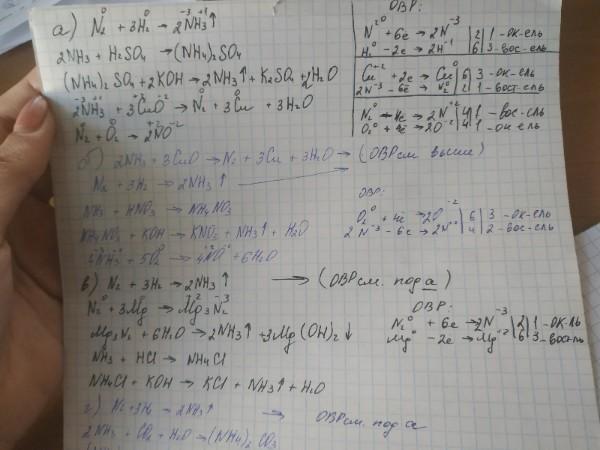 а) N₂⁰ + 3H₂⁰ → 2N⁻³H₃⁺¹↑
2NH₃ + H₂SO₄ → (NH₄)₂SO₄
(NH₄)₂SO₄ + 2KOH → 2NH₃↑ + K₂SO₄ + 2H₂O
2N⁻³H₃ + 3Cu⁺²O → N₂⁰ + 3Cu⁰ + 3H₂O
N₂⁰ + O₂⁰ → 2N⁺²O⁻²
ОВР:
N₂⁰ + 6e → 2N⁻³ | 2 | 1 - ок-ель
H₂⁰ - 2e → 2H⁺¹ | 6 | 3 - вос-ель
Cu⁺² + 2e → Cu⁰ | 6 | 3 - ок-ель
2N⁻³ - 6e → N₂⁰ | 2 | 1 - вост-ель
N₂⁰ - 4e → 2N⁺² | 4 | 1 - вос-ель
O₂⁰ + 4e → 2O⁻² | 4 | 1 - ок-ель
б) 2NH₃ + 3CuO → N₂ + 3Cu + 3H₂O → (ОВР см. выше)
N₂ + 3H₂ → 2NH₃↑
NH₃ + HNO₃ → NH₄NO₃
NH₄NO₃ + KOH → KNO₃ + NH₃↑ + H₂O
4N⁻³H₃ + 5O₂⁰ → 4N⁺²O⁻² + 6H₂O
ОВР:
O₂⁰ + 4e → 2O⁻² | 6 | 3 - ок-ель
2N⁻³ - 6e → 2N | 4 | 2 - вос-ель
в) N₂ + 3H₂ → 2NH₃↑ → (ОВР см. под а)
N₂⁰ + 3Mg⁰ → Mg₃⁺²N₂⁻³
Mg₃N₂ + 6H₂O → 2NH₃↑ + 3Mg(OH)₂↓
NH₃ + HCl → NH₄Cl
NH₄Cl + KOH → KCl + NH₃↑ + H₂O
ОВР:
N₂⁰ + 6e → 2N⁻³ | 2 | 1 - ок-ль
Mg⁰ - 2e → Mg⁺² | 6 | 3 - вост-ль
г) N₂ + 3H₂ → 2NH₃↑ → ОВР см. под а
2NH₃ + CO₂ + H₂O → (NH₄)₂CO₃